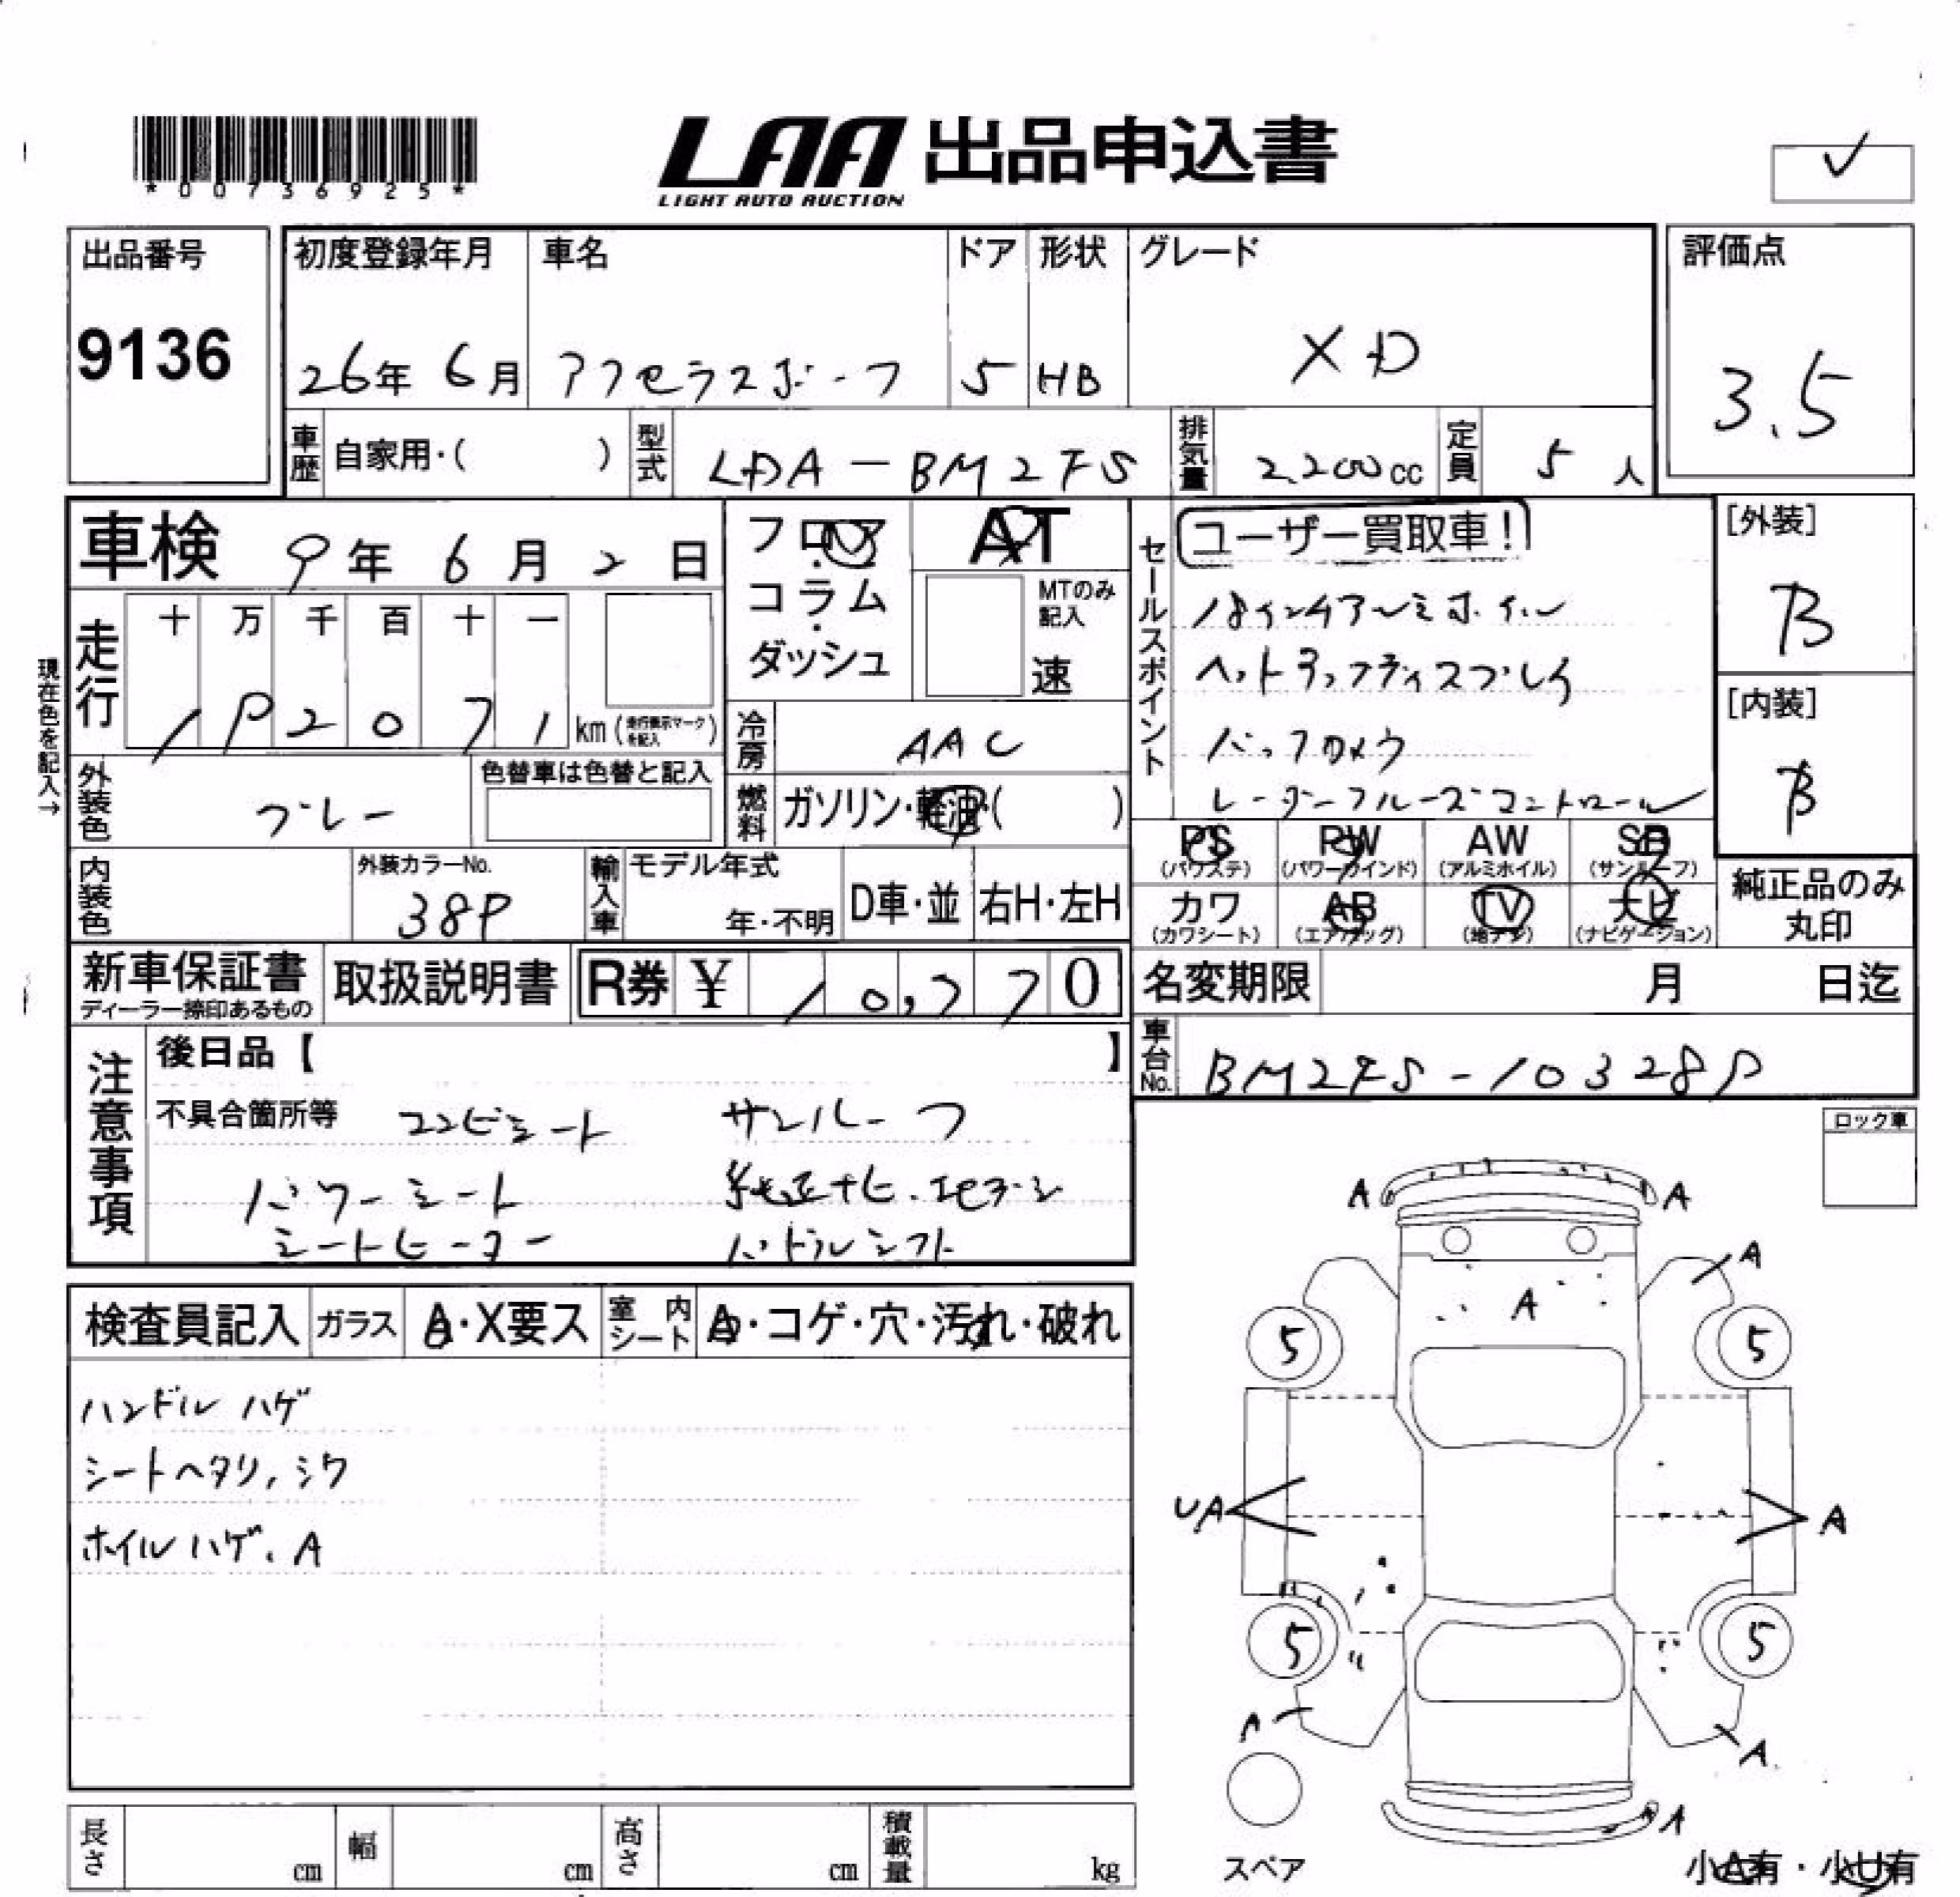 *00736925*
LAA 出品申込書
LIGHT AUTO AUCTION
✓
出品番号
9136
初度登録年月
26年 6月
車名
アクセラスポーツ
ドア
5
形状
HB
グレード
XD
評価点
3.5
車歴 自家用・( )
型式 LDA-BM2FS
排気量 2,200cc
定員 5人
車検 9年 6月 2日
フロア・コラム・ダッシュ
AT
MTのみ記入
速
セールスポイント
ユーザー買取車!
18インチアルミホイル
ヘットアップディスプレイ
バックカメラ
レーダークルーズコントロール
[外装]
B
[内装]
B
現在色を記入→
走行 十 万 千 百 十 一
192071 km (走行表示マークを記入)
冷房 AAC
外装色 グレー
色替車は色替と記入
燃料 ガソリン・軽油・( )
PS (パワステ)
PW (パワーウインド)
AW (アルミホイル)
SR (サンルーフ)
カワ (カワシート)
AB (エアバッグ)
TV (地デジ)
ナビ (ナビゲーション)
純正品のみ丸印
内装色
外装カラーNo.
38P
輸入車 モデル年式
年・不明
D車・並
右H・左H
新車保証書
ディーラー捺印あるもの
取扱説明書
R券 ¥ 10,770
名変期限 月 日迄
車台No. BM2FS-103289
注意事項
後日品【 】
不具合箇所等 コンビシート サンルーフ
パワーシート 純正ナビ・地デジ
シートヒーター パドルシフト
ロック車
検査員記入 ガラス A・X要ス 室内シート A・コゲ・穴・汚れ・破れ
ハンドル ハゲ
シートヘタリ,シワ
ホイルハゲ、A
A A
A
A
5 5
UA A
5 5
A A
A
スペア
小A有・小U有
長さ cm
幅 cm
高さ cm
積載量 kg